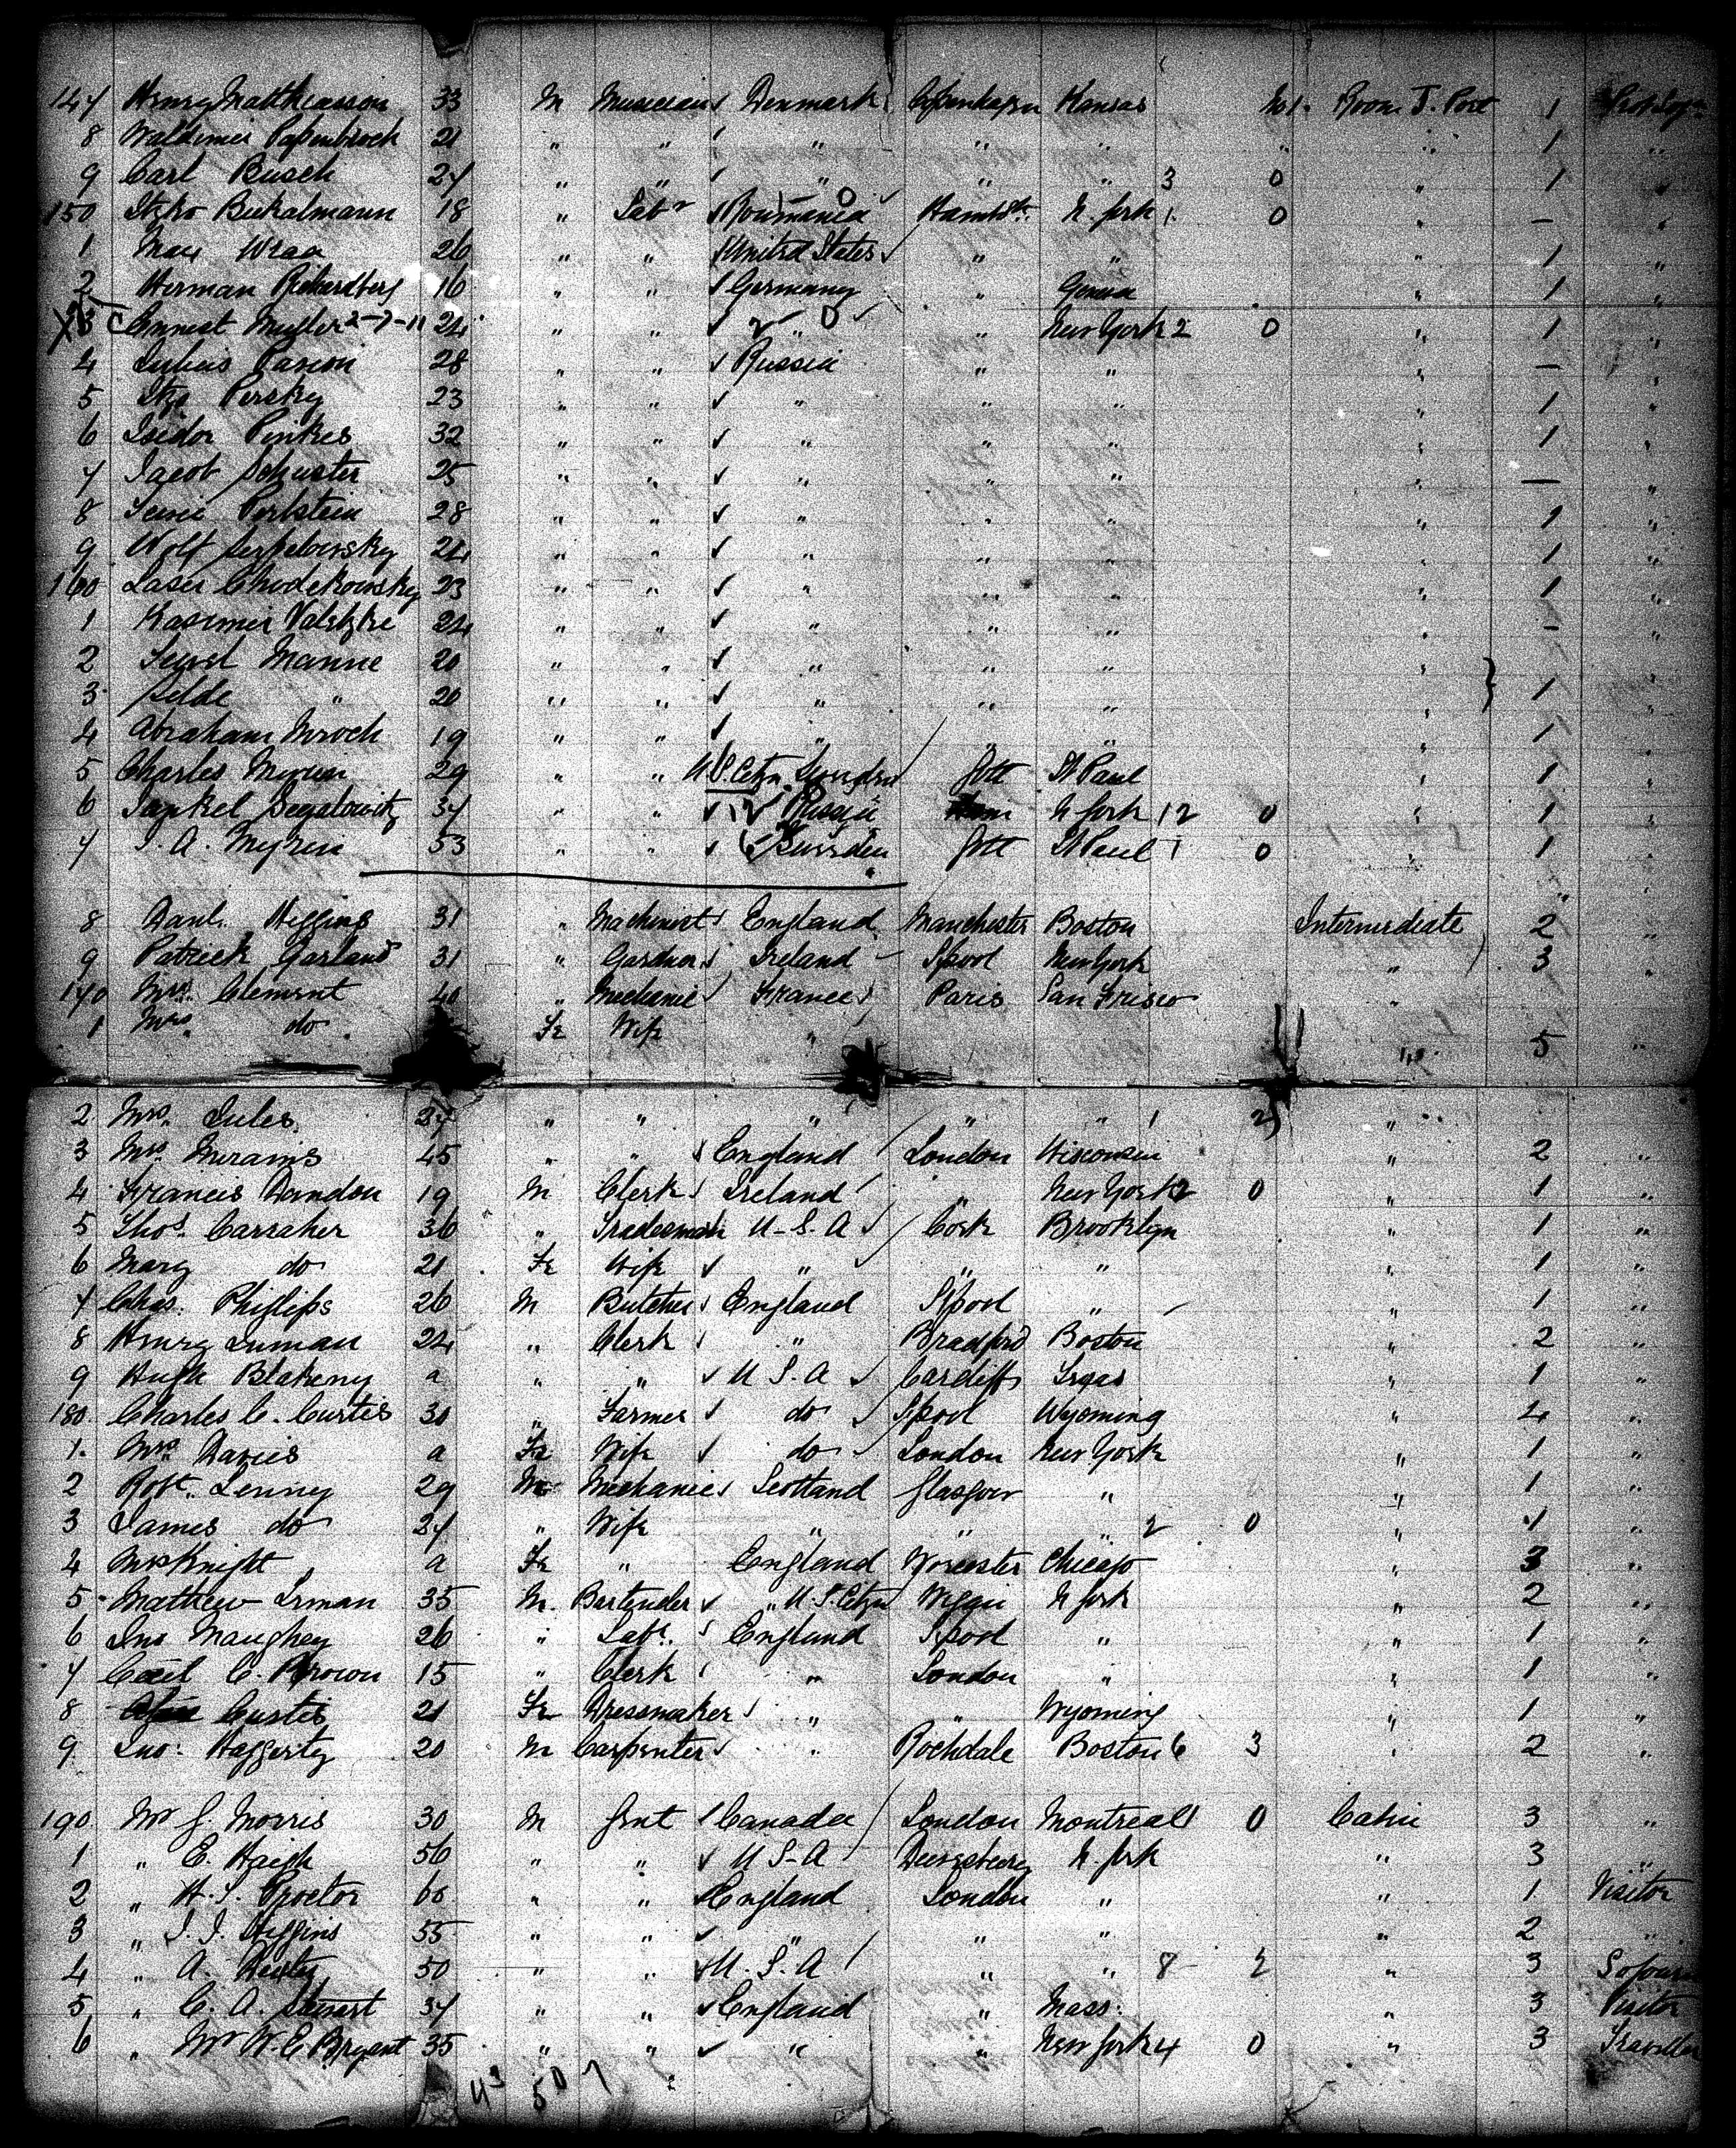 147 Henry Matthiasson 33 M Musician Denmark Copenhagen Kansas No 1 Room J. Port 1
8 Waldemar Papenbrock 21 " " " " " " " 1 "
9 Carl Busch 27 " " " " " 3 0 " 1 "
150 Itzko Bickalmann 18 " Labr Roumania Hambg. N. York 1 0 " — "
1 Max Wraa 26 " " United States " " " 1 "
2 Herman Rickardberg 16 " " Germany " Geneva " 1 "
3 Ernest Mugler 2-7-11 24 " " " " New York 2 0 " 1 "
4 Julius Parson 28 " " Russia " " " — "
5 Itzo Persky 23 " " " " " " 1 "
6 Isidor Pinkes 32 " " " " " " 1 "
7 Jacob Schuster 25 " " " " " " — "
8 Perlstein 28 " " " " " " 1 "
9 Wolf 24 " " " " " " 1 "
160 Laser Chodekowsky 23 " " " " " " 1 "
1 Kasimir 24 " " " " " " – "
2 Manne 20 " " " " " " "
3 Selde " 20 " " " " " " 1 "
4 Abraham Mroch 19 " " " " " " 1 "
5 Charles 29 " " U.S. Cetzn Gott St Paul " 1 "
6 Jankel Segalowitz 37 " " 12 Russia N York 12 0 " 1 "
7 J. A. Myren 53 " " Sweden Gott St Paul 1 0 " 1 "
8 Danl. Higgins 31 " Machinist England Manchester Boston Intermediate 2 "
9 Patrick Garland 31 " Gardner Ireland Lpool New York " 3 "
170 Mr. Clement 40 " Mechanic France Paris San Frisco "
1 Mrs do Fe Wife " " 5 "
2 Mrs. Jules 27 " " " " " 1 2 "
3 Mrs. Meranis 45 " " England London Wisconsin " 2 "
4 Francis Dandon 19 M Clerk Ireland " New York 2 0 " 1 "
5 Thos. Carraher 36 " Tradesman U-S.A Cork Brooklyn " 1 "
6 Mary do 21 Fe Wife " " " " 1 "
7 Chas. Phillips 26 M Butcher England Lpool " " 1 "
8 Henry Inman 24 " Clerk " Bradford Boston " 2 "
9 Hugh Blakeny a " " U S.A Cardiff " 1 "
180 Charles C. Curtis 30 " Farmer do Lpool Wyoming " 4 "
1 Mrs. Davies a Fe Wife do London New York " 1 "
2 Robt. Lenny 29 M Mechanic Scotland Glasgow " " 1 "
3 James do 27 " Wife " " " 2 0 " 1 "
4 Mrs Knight a Fe " England Worcester Chicago " 3 "
5 Matthew Irman 35 M. Bartender " U.S. Cetzn Wigan N York " 2 "
6 Jno Maughey 26 " Labr. England Lpool " " 1 "
7 Cecil C. Brown 15 " Clerk " London " " 1 "
8 Curtis 21 Fe Dressmaker " " Wyoming " 1 "
9 Jno. Haggerty 20 M Carpenter " Rochdale Boston 6 3 " 2 "
190 Mr J. Morris 30 M Gent Canada London Montreal 1 0 Cabin 3 "
1 " E. Haigh 56 " " U S-A Dewsbury N. York " 3 "
2 " H. S. Proctor 60 " " England London " " 1 Visitor
3 " J. J. Higgins 55 " " " " " " 2 "
4 " A. 50 " " U. S. A " " 8 2 " 3
5 " C. A. Stewart 37 " " England " Mass. " 3 Visitor
6 " Mr W. E. Bryant 35 " " " " New York 4 0 " 3 Traveller
43 507